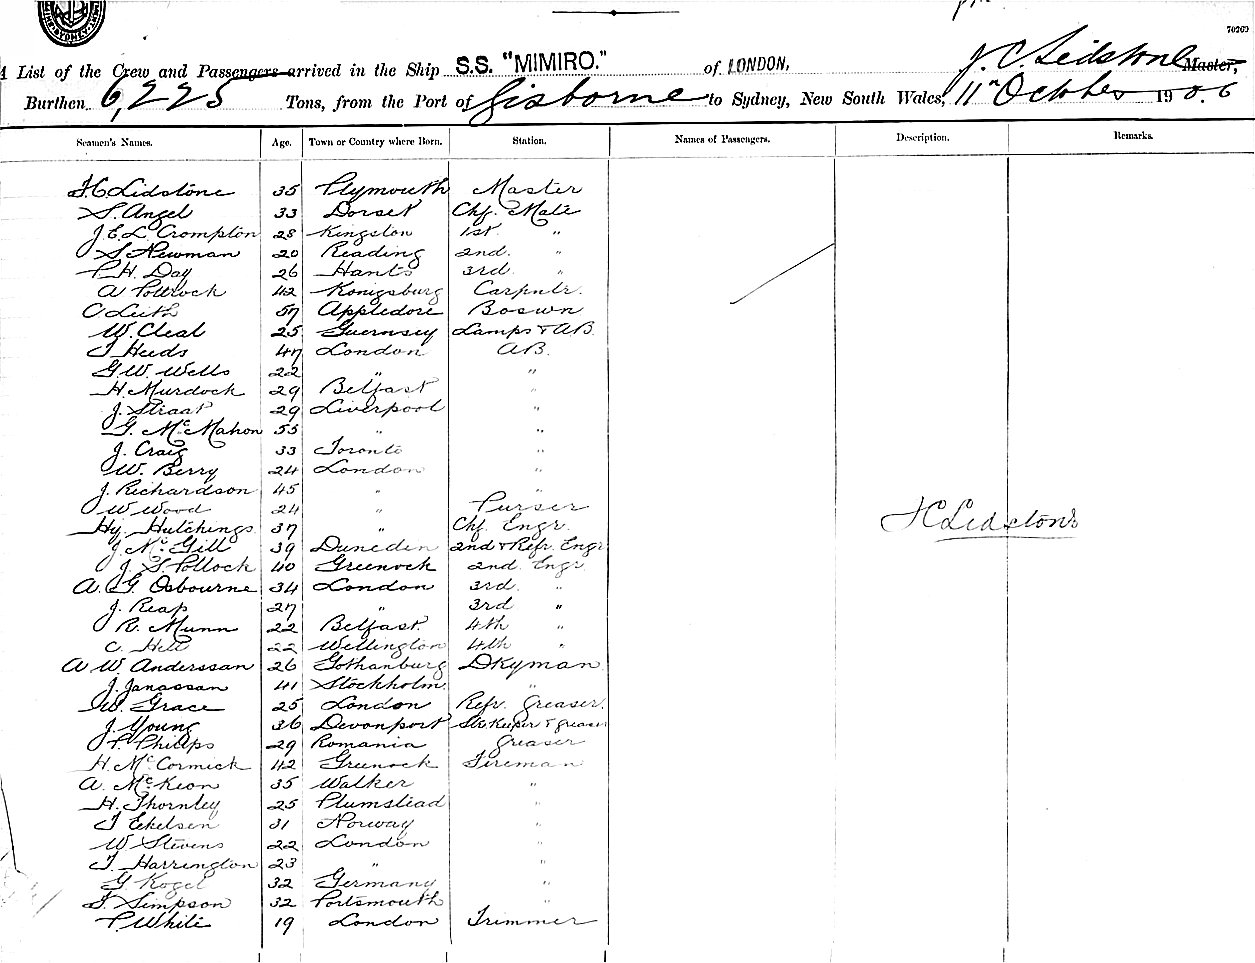 70269
A List of the Crew and Passengers arrived in the Ship S.S. "MIMIRO." of LONDON, J. C. Lidstone Master,
Burthen 6,225 Tons, from the Port of Gisborne to Sydney, New South Wales, 11th October 1906
Seamen's Names. Age. Town or Country where Born. Station. Names of Passengers. Description. Remarks.
J. C. Lidstone 35 Plymouth Master
S. Angel 33 Dorset Chf. Mate
J. E. L. Crompton 28 Kingston 1st "
S Newman 20 Reading 2nd. "
P. H. Day 26 Hants 3rd "
A Pottrock 42 Konigsburg Carpntr.
C Leith 57 Appledore Boswn
W. Cleal 25 Guernsey Lamps & AB.
T Heeds 47 London AB.
G. W. Wells 22 " "
H. Murdock 29 Belfast "
J. Straat 29 Liverpool "
G. McMahon 55 " "
J. Craig 33 Toronto "
W. Berry 24 London "
J. Richardson 45 " "
W Wood 24 " Purser
Hy Hutchings 37 " Chf. Engr.
J. McGill 39 Duneden 2nd & Refr. Engr
J. S. Pollock 40 Greenock 2nd Engr
A. G. Osbourne 34 London 3rd. "
J. Reap 27 " 3rd "
R. Munn 22 Belfast 4th "
C. Hett 22 Wellington 4th "
A W. Anderssan 26 Gothanburg Dkyman
J. Janassan 41 Stockholm "
W. Grace 25 London Refr. Greaser.
J. Young 36 Devonport Str. Keeper & greaser
P. Philips 29 Romania Greaser
H. McCormick 42 Greenock Fireman
A. McKeon 35 Walker "
H. Thornley 25 Plumstead "
T Eekelsen 31 Norway "
W Stevens 22 London "
T. Harrington 23 " "
G. Kogel 32 Germany "
T. Simpson 32 Portsmouth "
P. White 19 London Trimmer
J C Lidstone